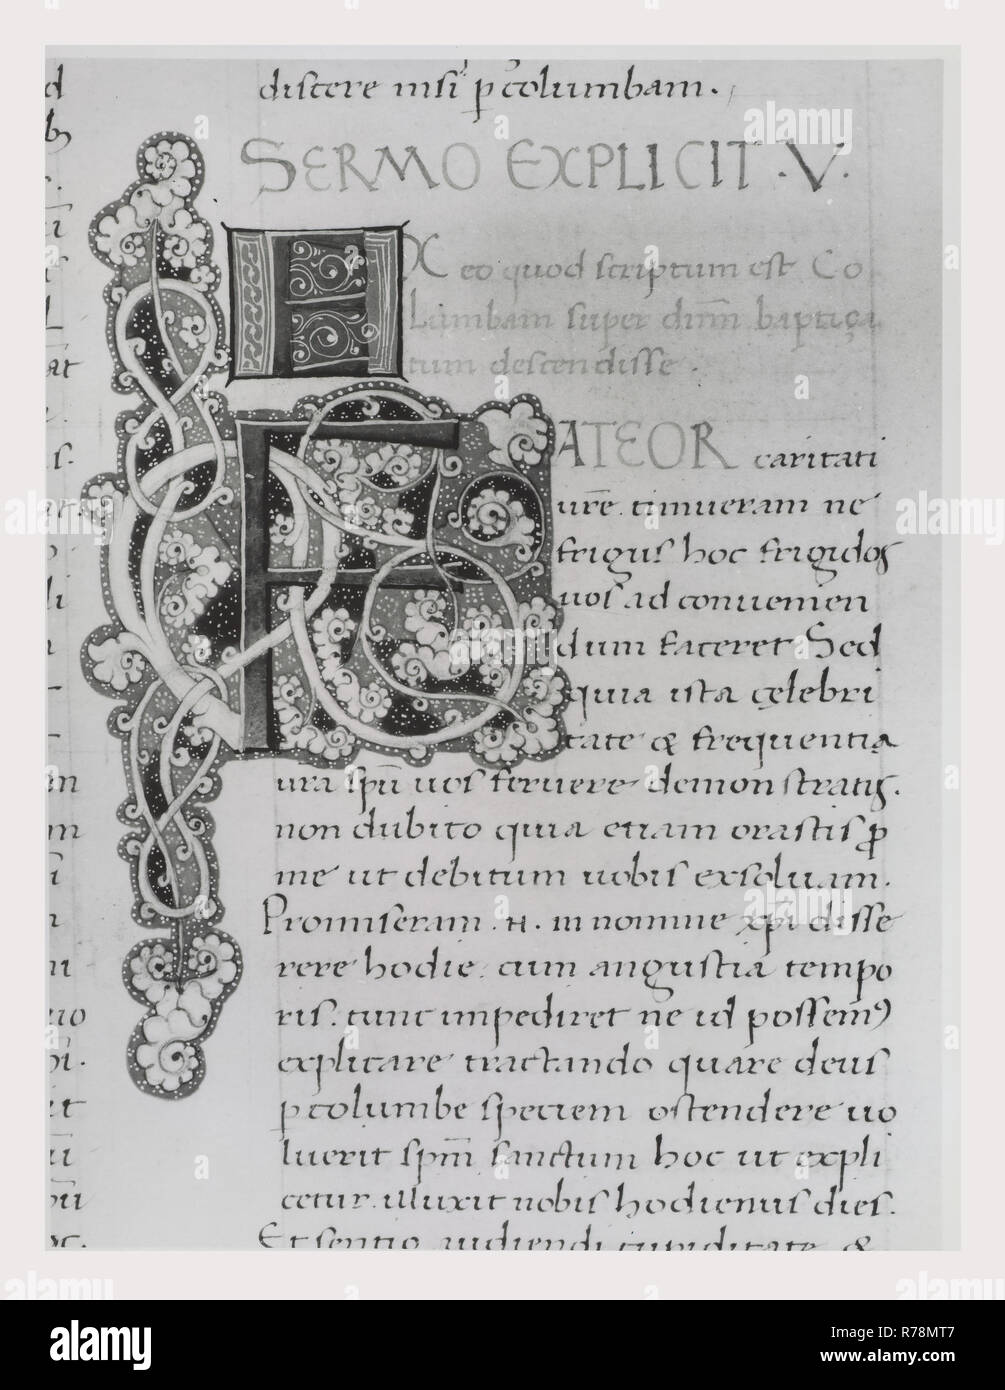 discere nisi p̲ columbam.
SERMO EXPLICIT .V.
EX eo quod scriptum est Co
lumbam super dñm baptiça
tum descendisse.
FATEOR caritati
ur̃e timueram ne
frigus hoc frigidos
uos ad conuenien
dum faceret Sed
quia ista çelebri
tate & frequentia
ura spũ uos feruere demonstratis.
non dubito quia etiam orastis ꝓ
me ut debitum uobis exsoluam.
Promiseram .n. in nomine xp̃i disse
rere hodie. cum angustia tempo
ris. tunc impediret ne id possemꝰ
explicare tractando quare deus
p̲ columbe speciem ostendere uo
luerit spm̃ sanctum hoc ut expli
cetur. illuxit nobis hodiernus dies.
Et sentio audiendi cupiditate &
alamy
Image ID: R78MT7
www.alamy.com